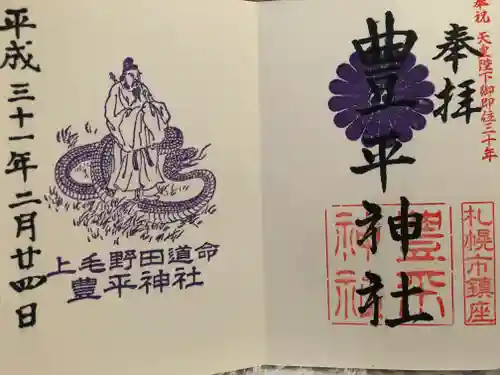 奉祝 天皇陛下御即位三十年
奉拝
豊平神社
豊平神社
札幌市鎮座
上毛野田道命
豊平神社
平成三十一年二月廿四日